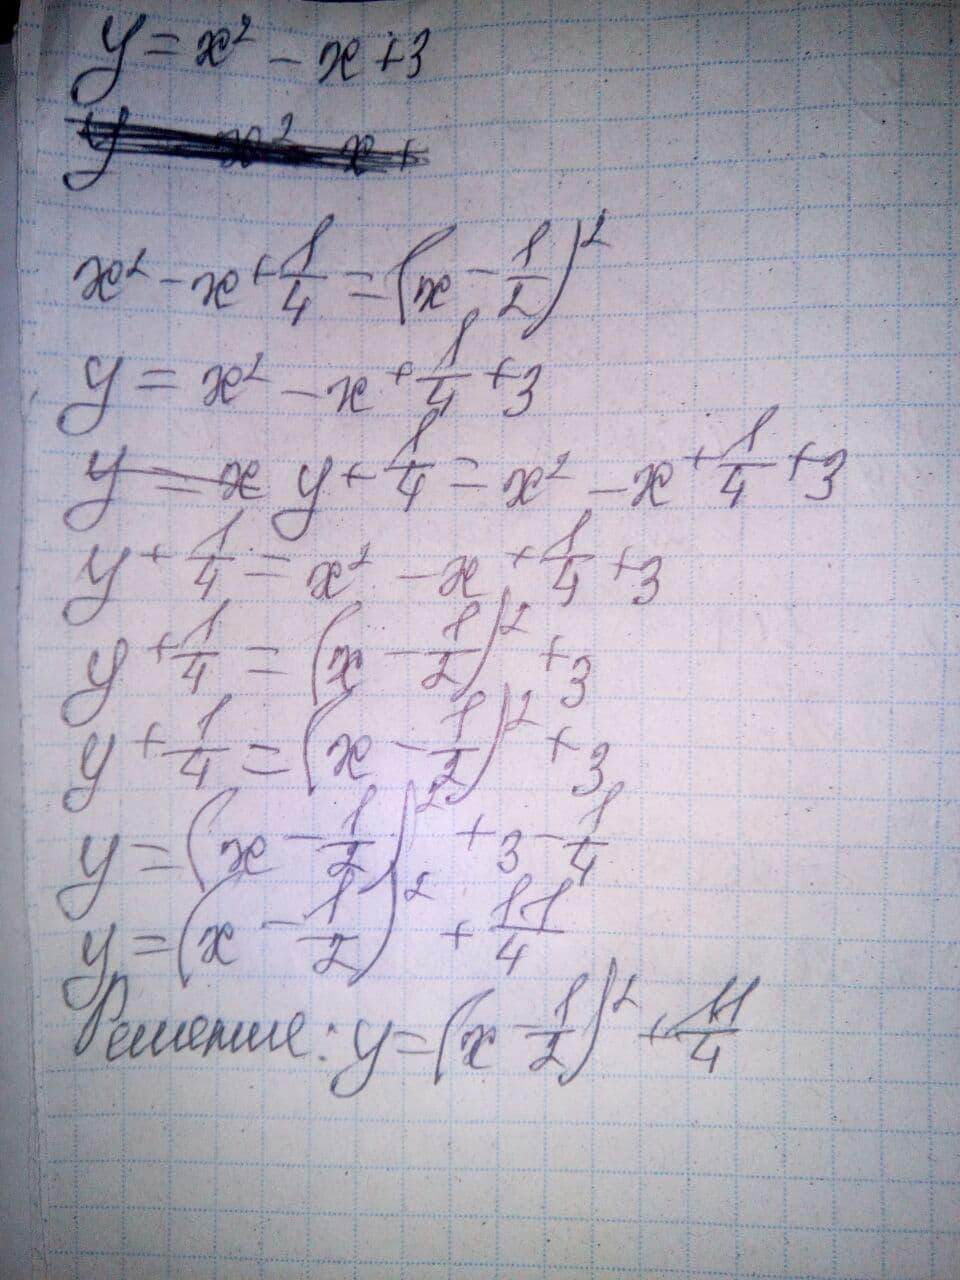 y = x² - x + 3
y x² x +
x² - x + 1/4 = (x - 1/2)²
y = x² - x + 1/4 + 3
y = x y + 1/4 = x² - x + 1/4 + 3
y + 1/4 = x² - x + 1/4 + 3
y + 1/4 = (x - 1/2)² + 3
y + 1/4 = (x - 1/2)² + 3
y = (x - 1/2)² + 3 - 1/4
y = (x - 1/2)² + 11/4
Решение: y = (x - 1/2)² + 11/4